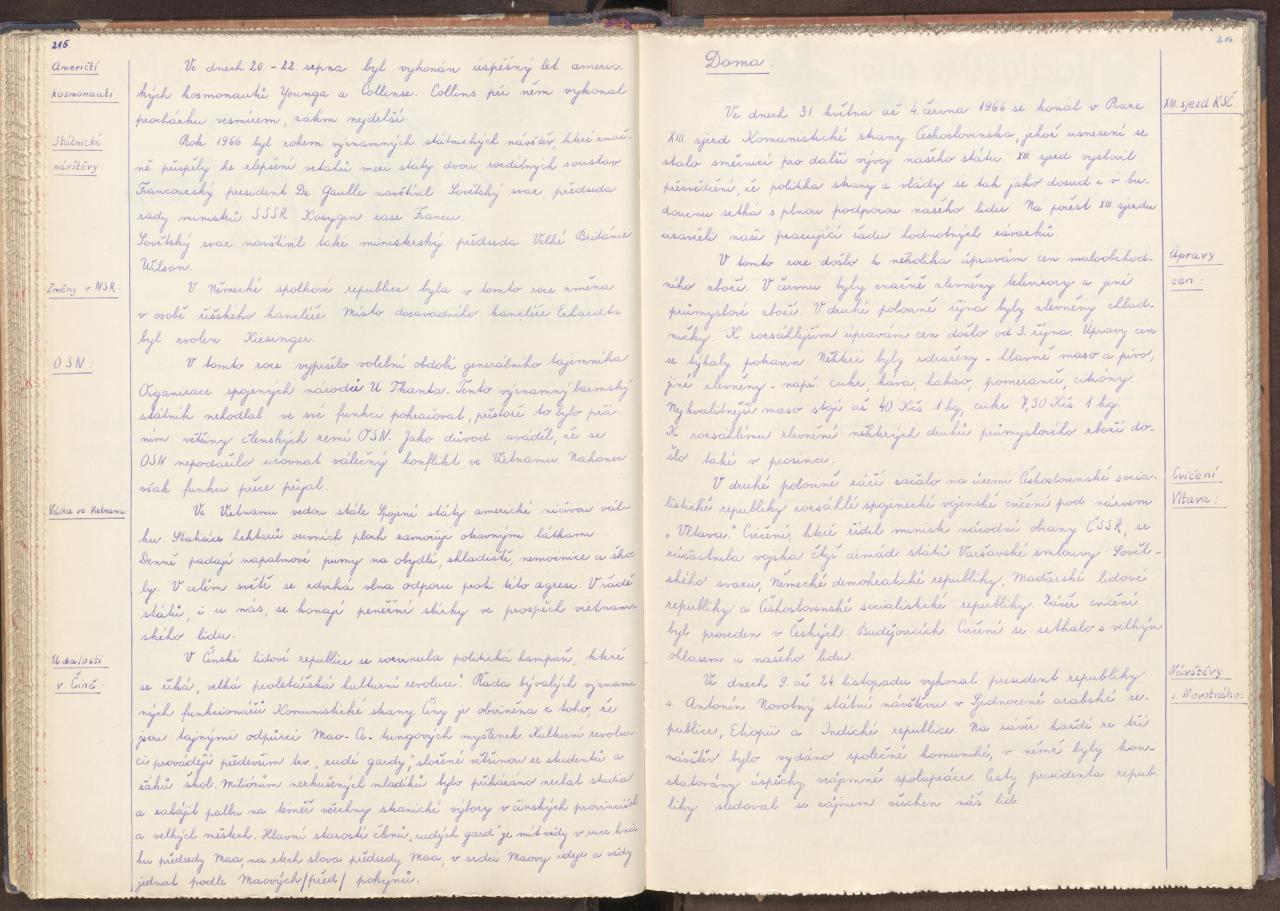 215.
Američtí
kosmonauti
Ve dnech 20. - 22. srpna byl vykonán úspěšný let americ-
kých kosmonautů Younga a Collinse. Collins při něm vykonal
procházku vesmírem, zatím nejdelší.
Státnické
návštěvy:
Rok 1966 byl rokem významných státnických návštěv, které znač-
ně přispěly ke zlepšení vztahů mezi státy dvou rozdílných soustav.
Francouzský president De Gaulle navštívil Sovětský svaz, předseda
rady ministrů SSSR Kosygin zase Francii.
Sovětský svaz navštívil také ministerský předseda Velké Británie
Wilson.
Změny v NSR:
V Německé spolkové republice byla v tomto roce změna
v osobě říšského kancléře. Místo dosavadního kancléře Erhardta
byl zvolen Kiesinger.
OSN:
V tomto roce vypršelo volební období generálního tajemníka
Organizace spojených národů U Thanta. Tento významný barmský
státník nehodlal ve své funkci pokračovat, přestože to bylo přá-
ním většiny členských zemí OSN. Jako důvod uváděl, že se
OSN nepodařilo urovnat válečný konflikt ve Vietnamu. Nakonec
však funkci přece přijal.
Válka ve Vietnamu
Ve Vietnamu vedou stále Spojené státy americké ničivou vál-
ku. Statisíce hektarů osevních ploch zamořují otravnými látkami.
Denně padají napalmové pumy na obydlí, skladiště, nemocnice a ško-
ly. V celém světě se zdvihá vlna odporu proti této agresi. V řadě
států, i u nás, se konají peněžní sbírky ve prospěch vietnam-
ského lidu.
Události
v Číně:
V Čínské lidové republice se rozvinula politická kampaň, které
se říká „velká proletářská kulturní revoluce". Řada bývalých význam-
ných funkcionářů Komunistické strany Číny je obviněna z toho, že
jsou tajnými odpůrci Mao-Ce-tungových myšlenek. Kulturní revolu-
ci provádějí především tzv. „rudé gardy", složené většinou ze studentů a
žáků škol. Miliónům nezkušených mladíků bylo přikázáno nechat studia
a zahájit palbu na téměř všechny stranické výbory v čínských provinciích
a velkých městech. Hlavní starostí členů „rudých gard" je mít vždy v ruce kníž-
ku předsedy Maa, na rtech slova předsedy Maa, v srdci Maovy ideje a vždy
jednat podle Maových /před/ pokynů.
216.
Doma:
XIII. sjezd KSČ:
Ve dnech 31. května až 4. června 1966 se konal v Praze
XIII. sjezd Komunistické strany Československa, jehož usnesení se
stalo směrnicí pro další vývoj našeho státu. XIII. sjezd vyslovil
přesvědčení, že politika strany a vlády se tak jako dosud i v bu-
doucnu setká s plnou podporou našeho lidu. Na počest XIII. sjezdu
uzavřeli naši pracující řadu hodnotných závazků.
Úpravy
cen:
V tomto roce došlo k několika úpravám cen maloobchod-
ního zboží. V červnu byly značně zlevněny televizory a jiné
průmyslové zboží. V druhé polovině října byly zlevněny chlad-
ničky. K rozsáhlejším úpravám cen došlo od 3. října. Úpravy cen
se týkaly potravin. Některé byly zdraženy - hlavně maso a pivo,
jiné zlevněny - např. cukr, káva, kakao, pomeranče, citróny.
Nejkvalitnější maso stojí až 40 Kčs 1 kg, cukr 7,30 Kčs 1 kg.
K rozsáhlému zlevnění některých druhů průmyslového zboží do-
šlo také v prosinci.
Cvičení
Vltava:
V druhé polovině září začalo na území Československé socia-
listické republiky rozsáhlé spojenecké vojenské cvičení pod názvem
„Vltava". Cvičení, které řídil ministr národní obrany ČSSR, se
zúčastnila vojska čtyř armád států Varšavské smlouvy: Sovět-
ského svazu, Německé demokratické republiky, Maďarské lidové
republiky a Československé socialistické republiky. Závěr cvičení
byl proveden v Českých Budějovicích. Cvičení se setkalo s velkým
ohlasem u našeho lidu.
Návštěvy
s. Novotného:
Ve dnech 9. až 24. listopadu vykonal president republiky
s. Antonín Novotný státní návštěvu v Sjednocené arabské re-
publice, Etiopii a Indické republice. Na závěr každé ze tří
návštěv bylo vydáno společné komuniké, v němž byly kon-
statovány úspěchy vzájemné spolupráce. Cesty presidenta repub-
liky sledoval se zájmem všechen náš lid.